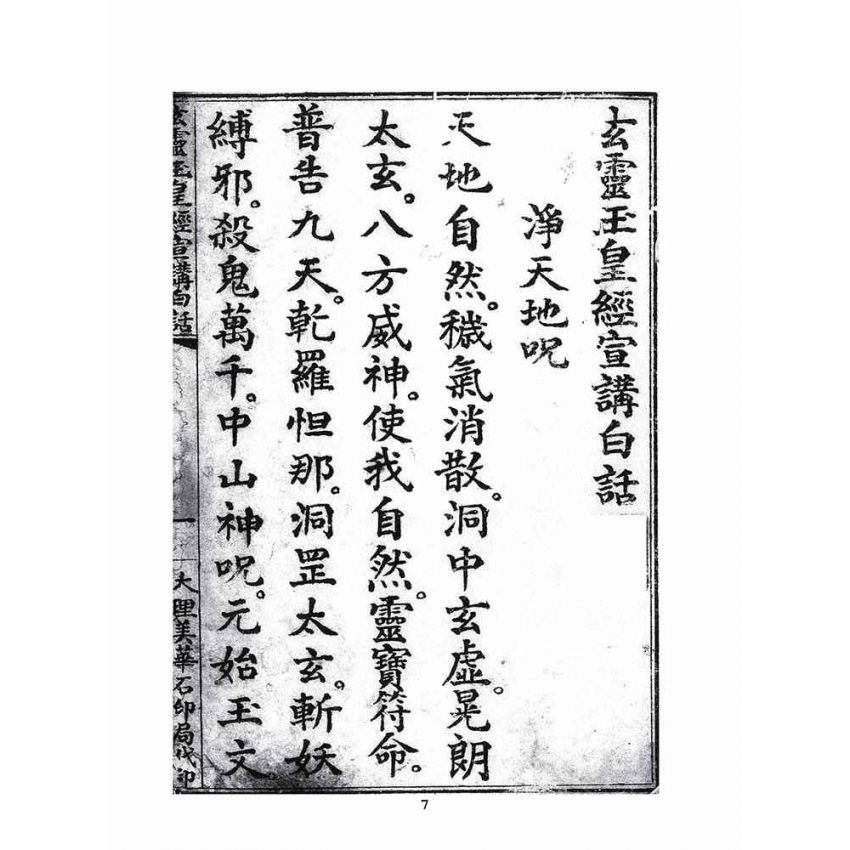 玄靈玉皇經宣講白話
淨天地呪
天地自然。穢氣消散。洞中玄虛。晃朗
太玄。八方威神。使我自然。靈寶符命。
普告九天。乾羅怛那。洞罡太玄。斬妖
縛邪。殺鬼萬千。中山神呪。元始玉文。
玄靈玉皇經宣講白話 一 大理美華石印局代印
7